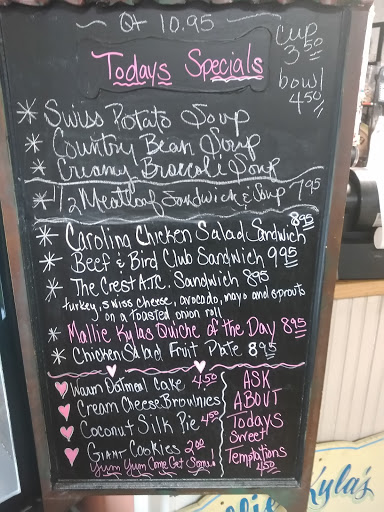 Qt 10.95
cup
3.50
Todays Specials
bowl
4.50
* Swiss Potato Soup
* Country Bean Soup
* Creamy Broccoli Soup
* 1/2 Meatloaf Sandwich & Soup 7.95
* Carolina Chicken Salad Sandwich 8.95
* Beef & Bird Club Sandwich 9.95
* The Crest A.T.C. Sandwich 8.95
turkey, swiss cheese, avocado, mayo and sprouts
on a toasted onion roll
* Mallie Kylas Quiche of the Day 8.95
* Chicken Salad Fruit Plate 8.95
Warm Oatmeal Cake 4.50
Cream Cheese Brownies
Coconut Silk Pie 4.50
Giant Cookies 2.00
Yum Yum Come Get Some!
ASK
ABOUT
Todays
Sweet
Temptations
4.50
Kyla's